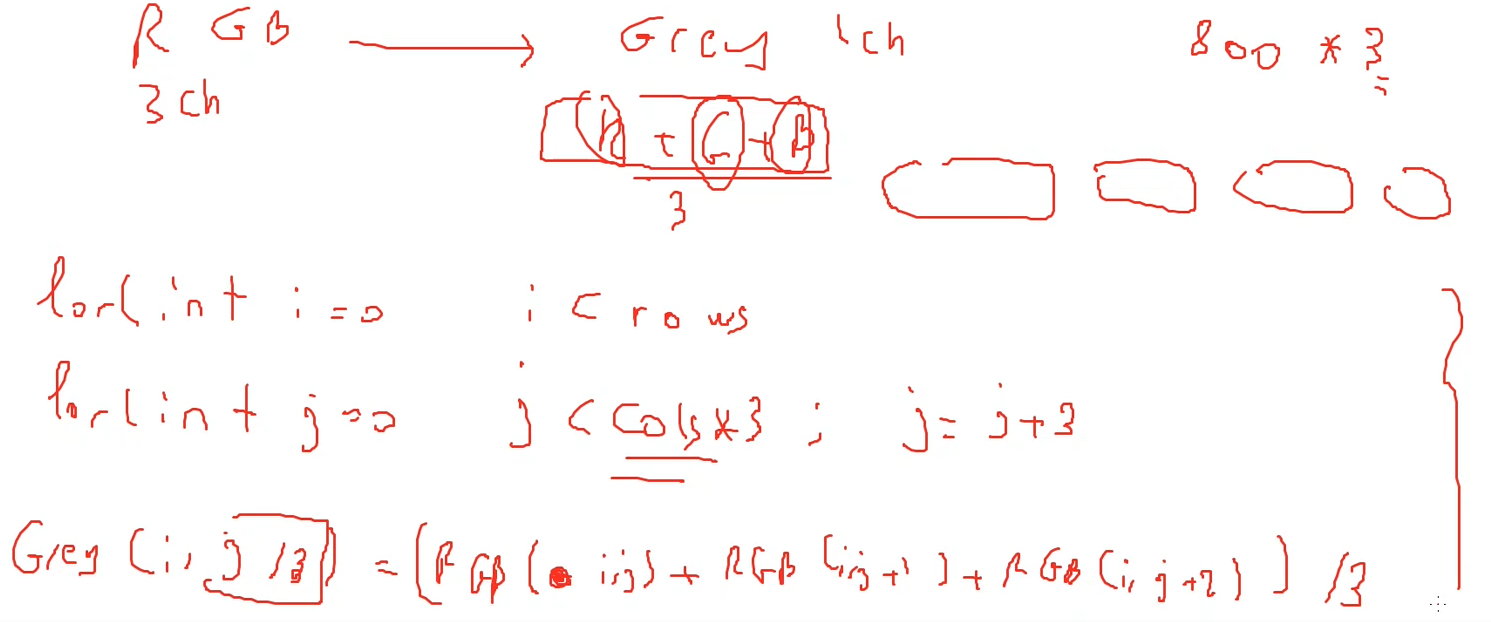 RGB → Grey 1ch 800 * 3
3ch
R + G + B
3
for(int i=0 i < rows
for(int j=0 j < cols*3 ; j = j+3
Grey (i, j /3) = (RGB(i,j) + RGB(i,j+1) + RGB(i, j+2)) /3